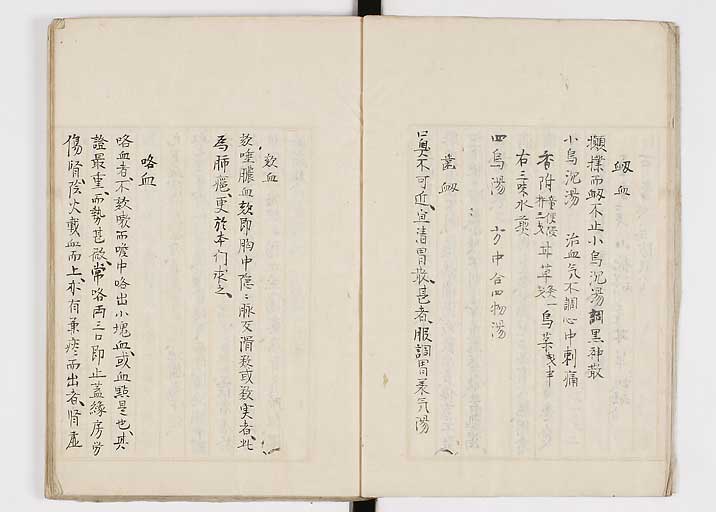 衂血
攧撲而衂不止小烏沉湯調黒神散
小烏沉湯 治血気不調心中刺痛
香附 甘草 烏薬
右三味水煎
四烏湯 方中合四物湯
歯衂
口臭不可近宜清胃散甚者服調胃承気湯
欬血
欬唾膿血欬即胸中隠〻脉反滑数或数実者此
為肺癰更於本門求之
咯血
咯血者不欬嗽而喉中咯出小塊血或血點是也其
證最重而勢甚微常咯両三口即止蓋縁房労
傷腎陰火載血而上亦有兼痰而出者腎虚